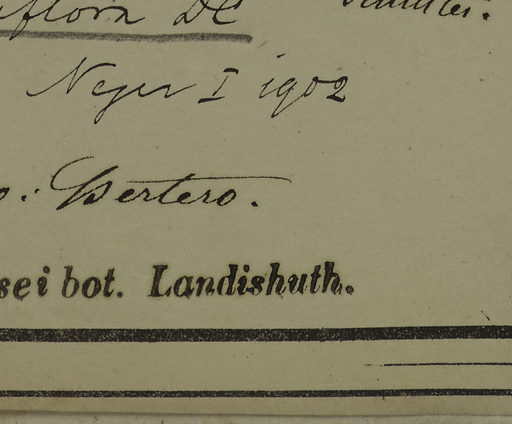 iflora DC
Neger I 1902
o. Bertero.
sei bot. Landishuth.